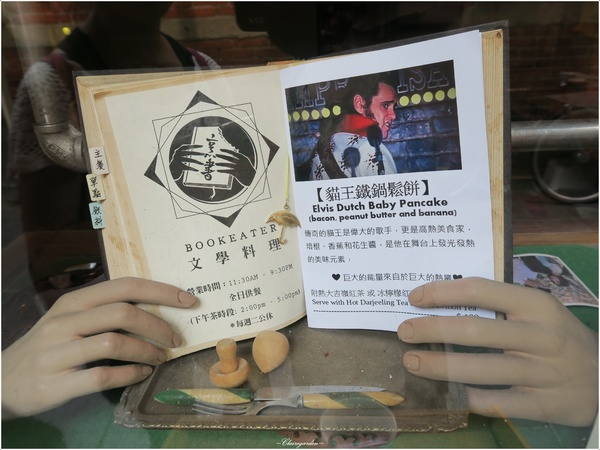 主餐
早點
飲料
BOOKEATER
文學料理
營業時間：11:30AM - 9:30PM
全日供餐
(下午茶時段: 2:00pm - 5:00pm)
*每週二公休
【貓王鐵鍋鬆餅】
Elvis Dutch Baby Pancake
(bacon, peanut butter and banana)
傳奇的貓王是偉大的歌手，更是高熱美食家，
培根、香蕉和花生醬，是他在舞台上發光發熱
的美味元素，
♥巨大的能量來自於巨大的熱量♥
附熱大吉嶺紅茶 或 冰檸檬紅
Serve with Hot Darjeeling Tea
Tea
~Chairgarden~